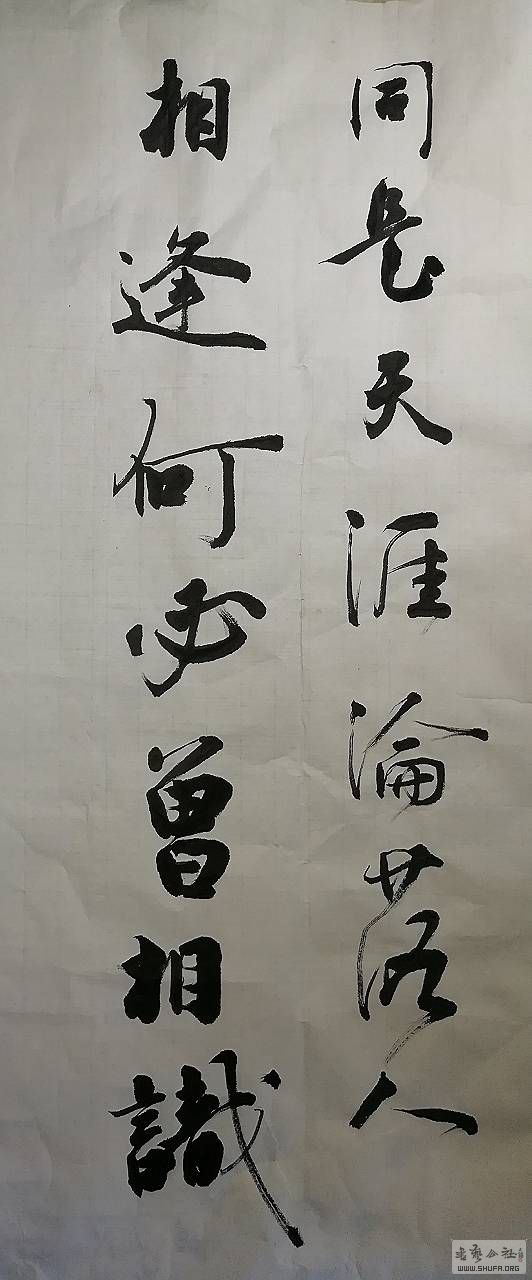 同是天涯淪落人
相逢何必曾相識
WWW.SHUFA.ORG